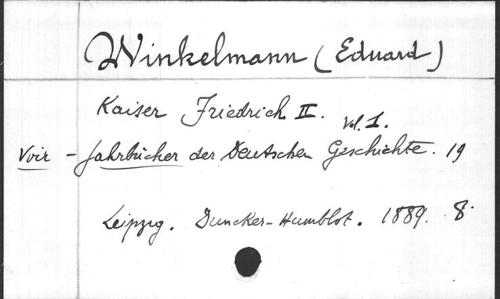 Winkelmann (Eduard)
Kaiser Friedrich II. Vol. 1.
Voir - Jahrbücher der Deutschen Geschichte. 19
Leipzig. Duncker-Humblot. 1889. 8°